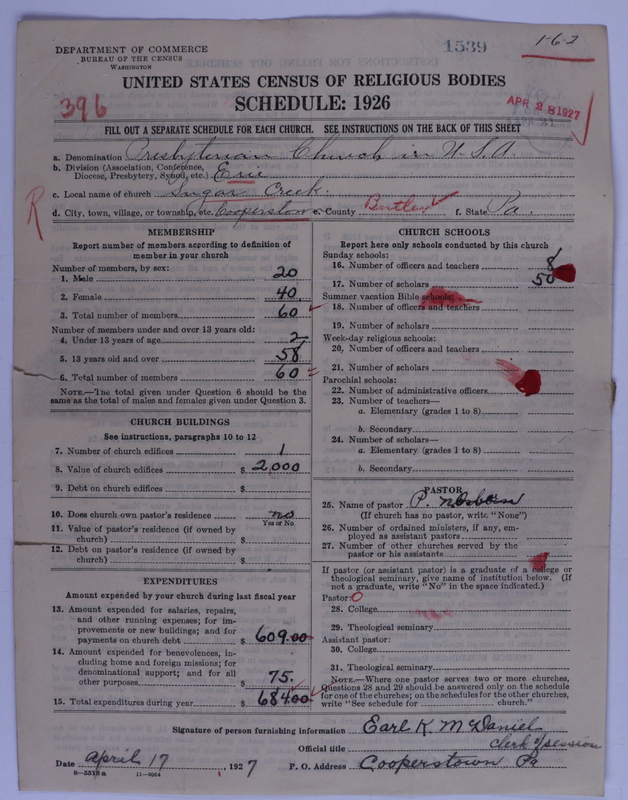 DEPARTMENT OF COMMERCE
BUREAU OF THE CENSUS
WASHINGTON
1539
1-6-2
UNITED STATES CENSUS OF RELIGIOUS BODIES
SCHEDULE: 1926
396
APR 28 1927
FILL OUT A SEPARATE SCHEDULE FOR EACH CHURCH. SEE INSTRUCTIONS ON THE BACK OF THIS SHEET
a. Denomination Presbyterian Church in U.S.A.
b. Division (Association, Conference, Diocese, Presbytery, Synod, etc.) Erie
c. Local name of church Sugar Creek.
d. City, town, village, or township, etc. Cooperstown e. County Butler f. State Pa.
R
MEMBERSHIP
Report number of members according to definition of
member in your church
Number of members, by sex:
1. Male 20
2. Female 40
3. Total number of members 60
Number of members under and over 13 years old:
4. Under 13 years of age 2
5. 13 years old and over 58
6. Total number of members 60
NOTE.—The total given under Question 6 should be the
same as the total of males and females given under Question 3.
CHURCH BUILDINGS
See instructions, paragraphs 10 to 12
7. Number of church edifices 1
8. Value of church edifices $ 2,000
9. Debt on church edifices $
10. Does church own pastor's residence no
Yes or No
11. Value of pastor's residence (if owned by
church) $
12. Debt on pastor's residence (if owned by
church) $
EXPENDITURES
Amount expended by your church during last fiscal year
13. Amount expended for salaries, repairs,
and other running expenses; for im-
provements or new buildings; and for
payments on church debt $ 609.00
14. Amount expended for benevolences, in-
cluding home and foreign missions; for
denominational support; and for all
other purposes $ 75.
15. Total expenditures during year $ 684.00
CHURCH SCHOOLS
Report here only schools conducted by this church
Sunday schools:
16. Number of officers and teachers 8
17. Number of scholars 50
Summer vacation Bible schools:
18. Number of officers and teachers
19. Number of scholars
Week-day religious schools:
20. Number of officers and teachers
21. Number of scholars
Parochial schools:
22. Number of administrative officers
23. Number of teachers—
a. Elementary (grades 1 to 8)
b. Secondary
24. Number of scholars—
a. Elementary (grades 1 to 8)
b. Secondary
PASTOR
25. Name of pastor P.
(If church has no pastor, write "None")
26. Number of ordained ministers, if any, em-
ployed as assistant pastors
27. Number of other churches served by the
pastor or his assistants
If pastor (or assistant pastor) is a graduate of a college or
theological seminary, give name of institution below. (If
not a graduate, write "No" in the space indicated.)
Pastor: O
28. College
29. Theological seminary
Assistant pastor:
30. College
31. Theological seminary
NOTE.—Where one pastor serves two or more churches,
Questions 28 and 29 should be answered only on the schedule
for one of the churches; on the schedules for the other churches,
write "See schedule for church."
Signature of person furnishing information Earl K. McDaniel
Official title Clerk of session
Date April 17, 1927 P. O. Address Cooperstown Pa
8—5518 a 11—9064